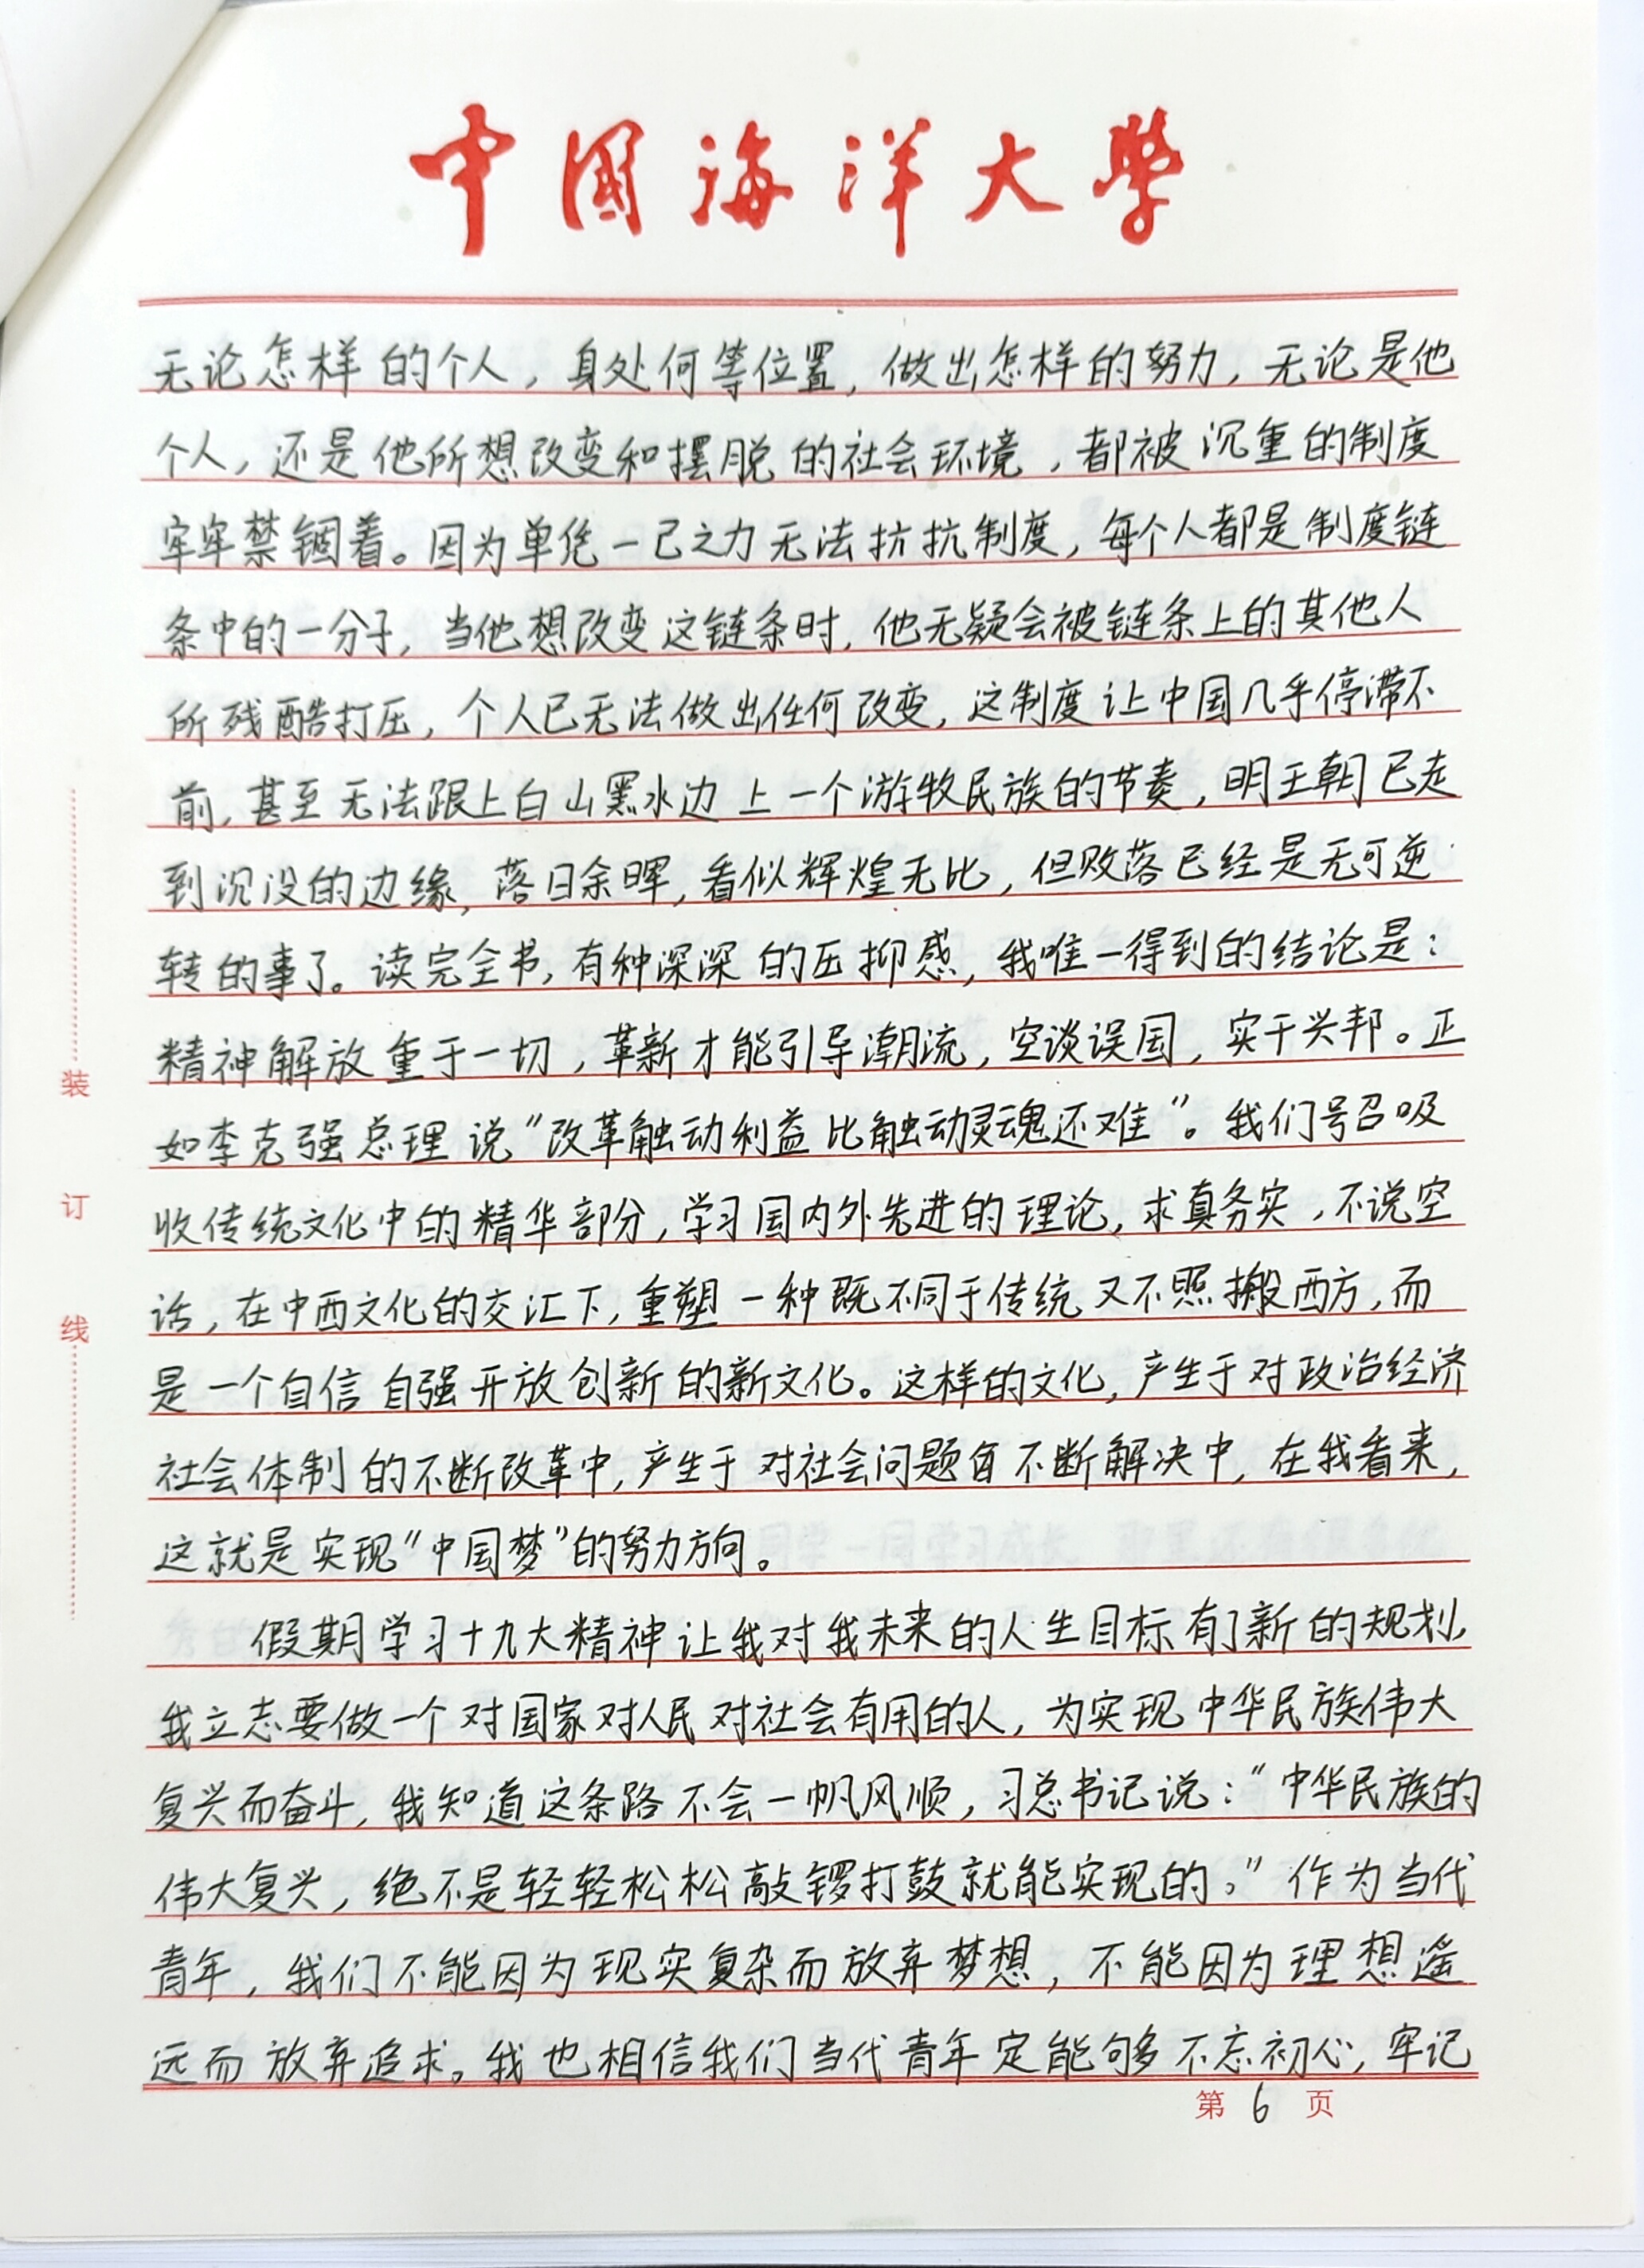 中国海洋大学
无论怎样的个人，身处何等位置，做出怎样的努力，无论是他
个人，还是他所想改变和摆脱的社会环境，都被沉重的制度
牢牢禁锢着。因为单凭一己之力无法抗抗制度，每个人都是制度链
条中的一分子，当他想改变这链条时，他无疑会被链条上的其他人
所残酷打压，个人已无法做出任何改变，这制度让中国几乎停滞不
前，甚至无法跟上白山黑水边上一个游牧民族的节奏，明王朝已走
到沉没的边缘，落日余晖，看似辉煌无比，但败落已经是无可逆
转的事了。读完全书，有种深深的压抑感，我唯一得到的结论是：
精神解放重于一切，革新才能引导潮流，空谈误国，实干兴邦。正
如李克强总理说“改革触动利益比触动灵魂还难”。我们号召吸
收传统文化中的精华部分，学习国内外先进的理论，求真务实，不说空
话，在中西文化的交汇下，重塑一种既不同于传统又不照搬西方，而
是一个自信自强开放创新的新文化。这样的文化，产生于对政治经济
社会体制的不断改革中，产生于对社会问题的不断解决中，在我看来，
这就是实现“中国梦”的努力方向。
假期学习十九大精神让我对我未来的人生目标有了新的规划，
我立志要做一个对国家对人民对社会有用的人，为实现中华民族伟大
复兴而奋斗，我知道这条路不会一帆风顺，习总书记说：“中华民族的
伟大复兴，绝不是轻轻松松敲锣打鼓就能实现的。”作为当代
青年，我们不能因为现实复杂而放弃梦想，不能因为理想遥
远而放弃追求。我也相信我们当代青年定能够不忘初心，牢记
第6页
装
订
线